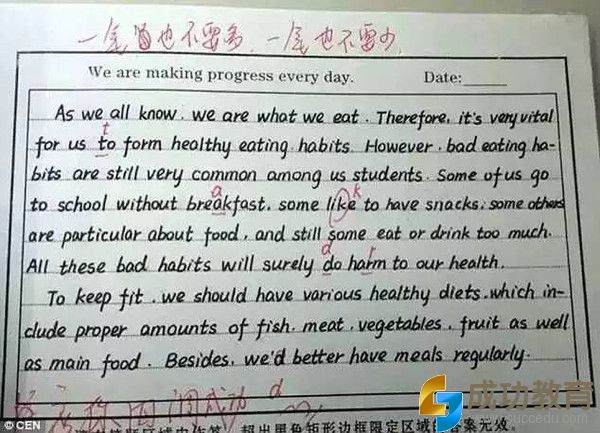 一笔也不要多,一笔也不要少
We are making progress every day. Date:
As we all know, we are what we eat. Therefore, it's very vital
t
for us to form healthy eating habits. However, bad eating ha-
bits are still very common among us students. Some of us go
a k
to school without breakfast, some like to have snacks, some others
are particular about food, and still some eat or drink too much.
d r
All these bad habits will surely do harm to our health.
To keep fit, we should have various healthy diets, which in-
clude proper amounts of fish, meat, vegetables, fruit as well
as main food. Besides, we'd better have meals regularly.
d
成功教育
SUCCEDU.COM
©CEN
超出黑色矩形边框限定区域的答案无效